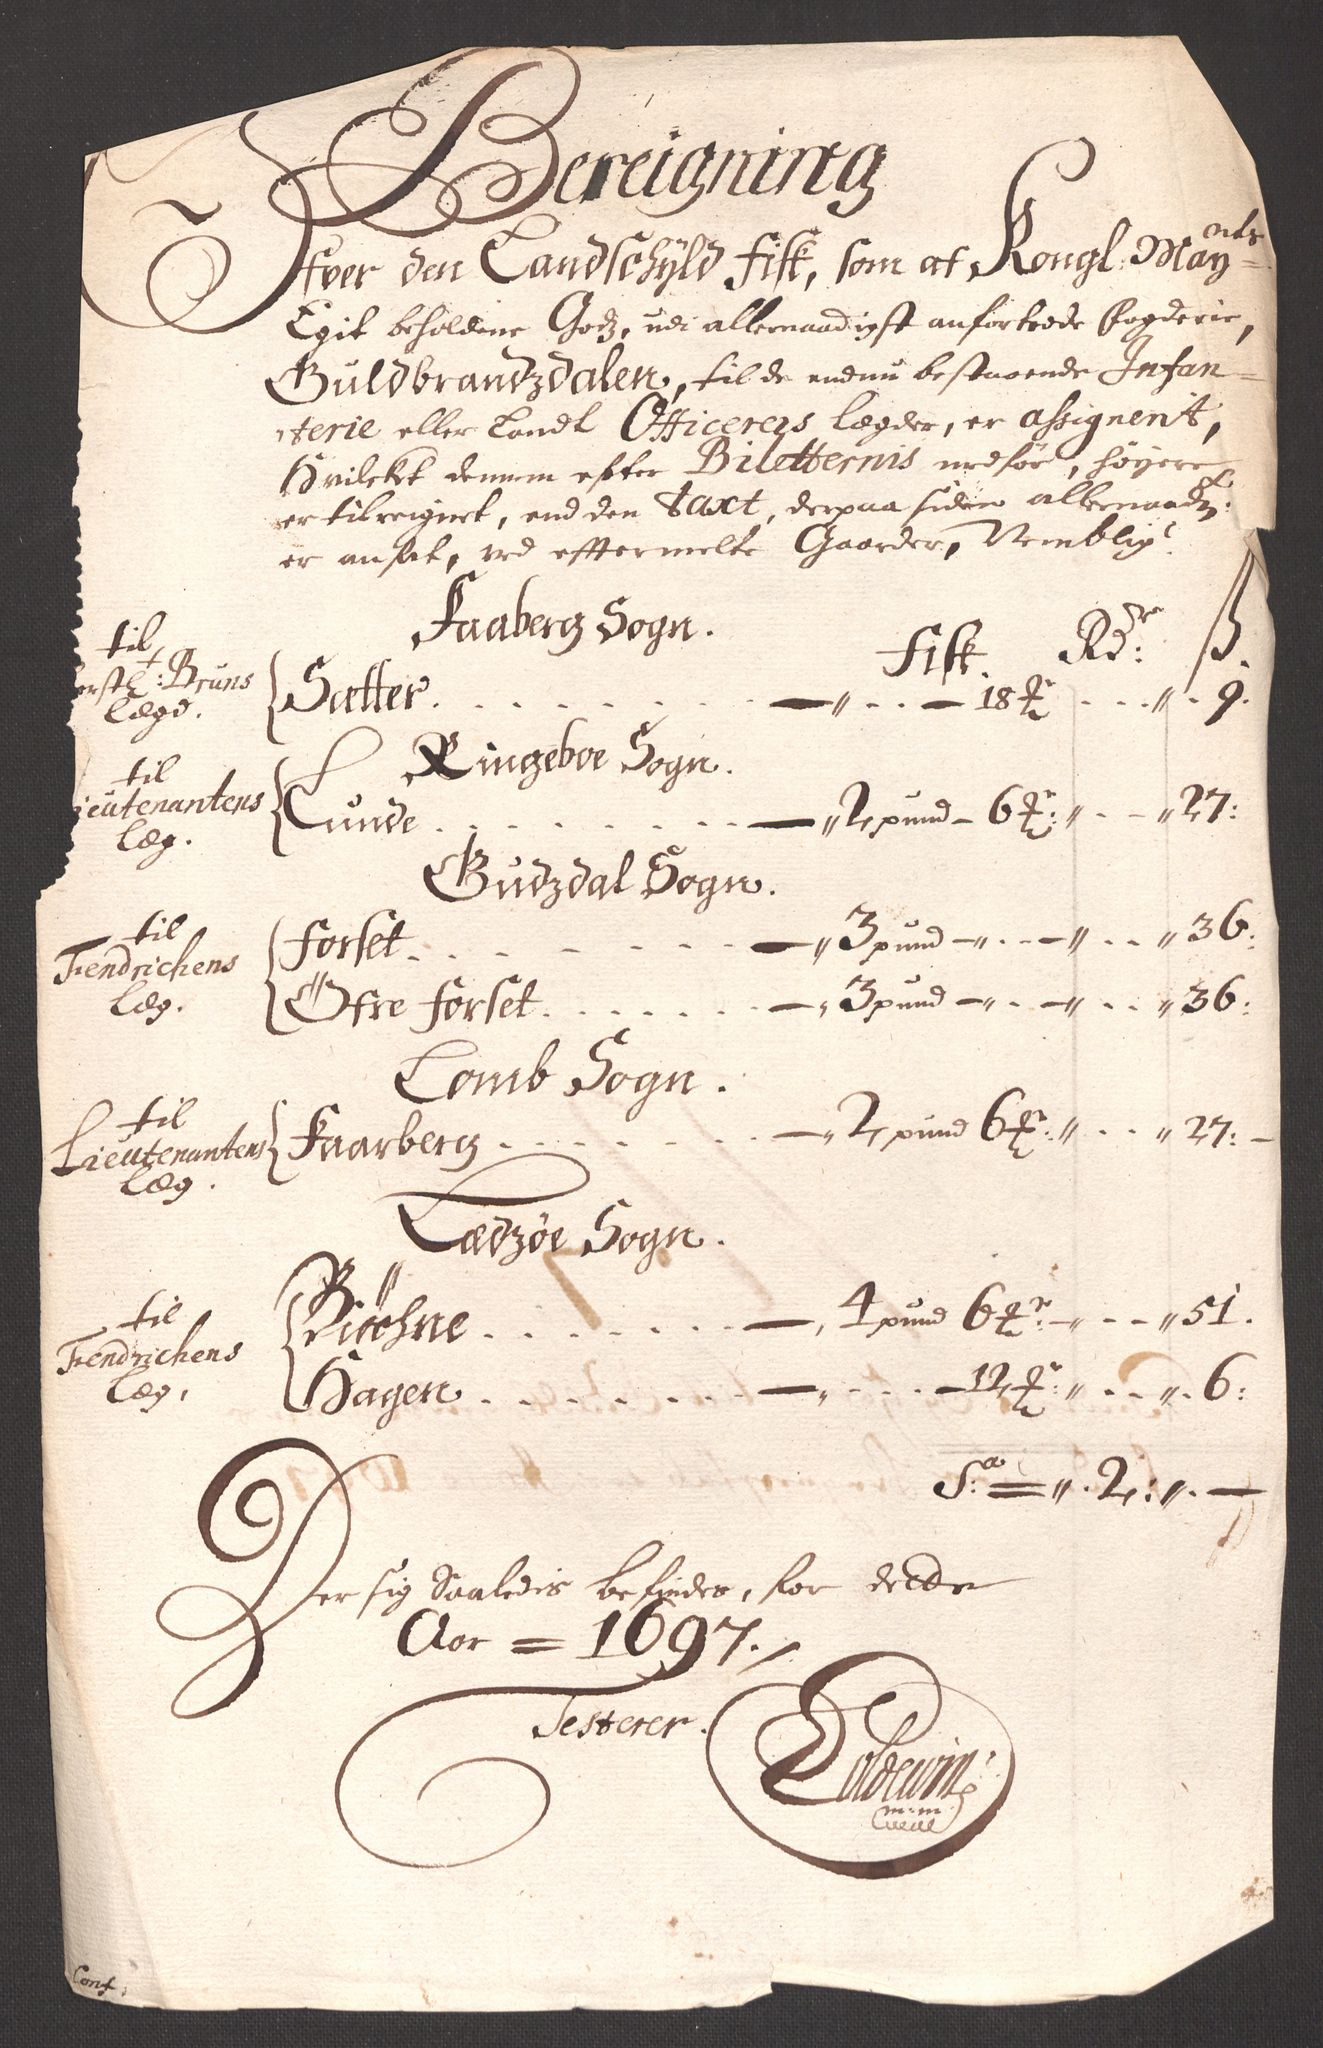 Bereigning
Ofver den Landschyld fisk, som af Kongl: May=ts
Egit beholdene Godz, udi allernaadigst anfortrode Fogderie,
Guldbrandzdalen, til de endnu bestaaende Infan=
terie eller Landt Officerers lægder, er assignerit,
Hvilcket dennem efter Biletternis medför, höyere
er tilreignet, end den taxt, derpaa siden allernaadgst:
er ansat, ved eftermelte Gaarder, Nemblig:
Faaberg Sogn.
fisk. Rdr: ß.
til
Bruns
lægd.
Sætter. — " . . — 18 ℔r . . . " . 9.
Ringeboe Sogn.
til
ieutenantens
læg.
Lunde . . . — " 2 pund – 6 ℔r: " . – " 27:
Gudzdal Sogn.
til
Fendrichens
læg.
forset . . . — " 3 pund – " . . – " . . " 36:
Öfre forset . . . — " 3 pund – " . – " . . " 36:
Lomb Sogn.
til
Lieutenantens
læg.
Faarberg . . . — " 2 pund 6 ℔r: " . . " 27: –
Lædzöe Sogn.
til
Fendrichens
læg.
Biöhne . . . — , 4 pund 6 ℔r: – " . . – " 51.
Hagen . . . — " . . . — 12 ℔r: " . . " . 6:
S:a = " . 2 : " . —
Der sig Saaledis befindes, for dette
Aar = 1697.
Testerer.
m: m:
Conf: